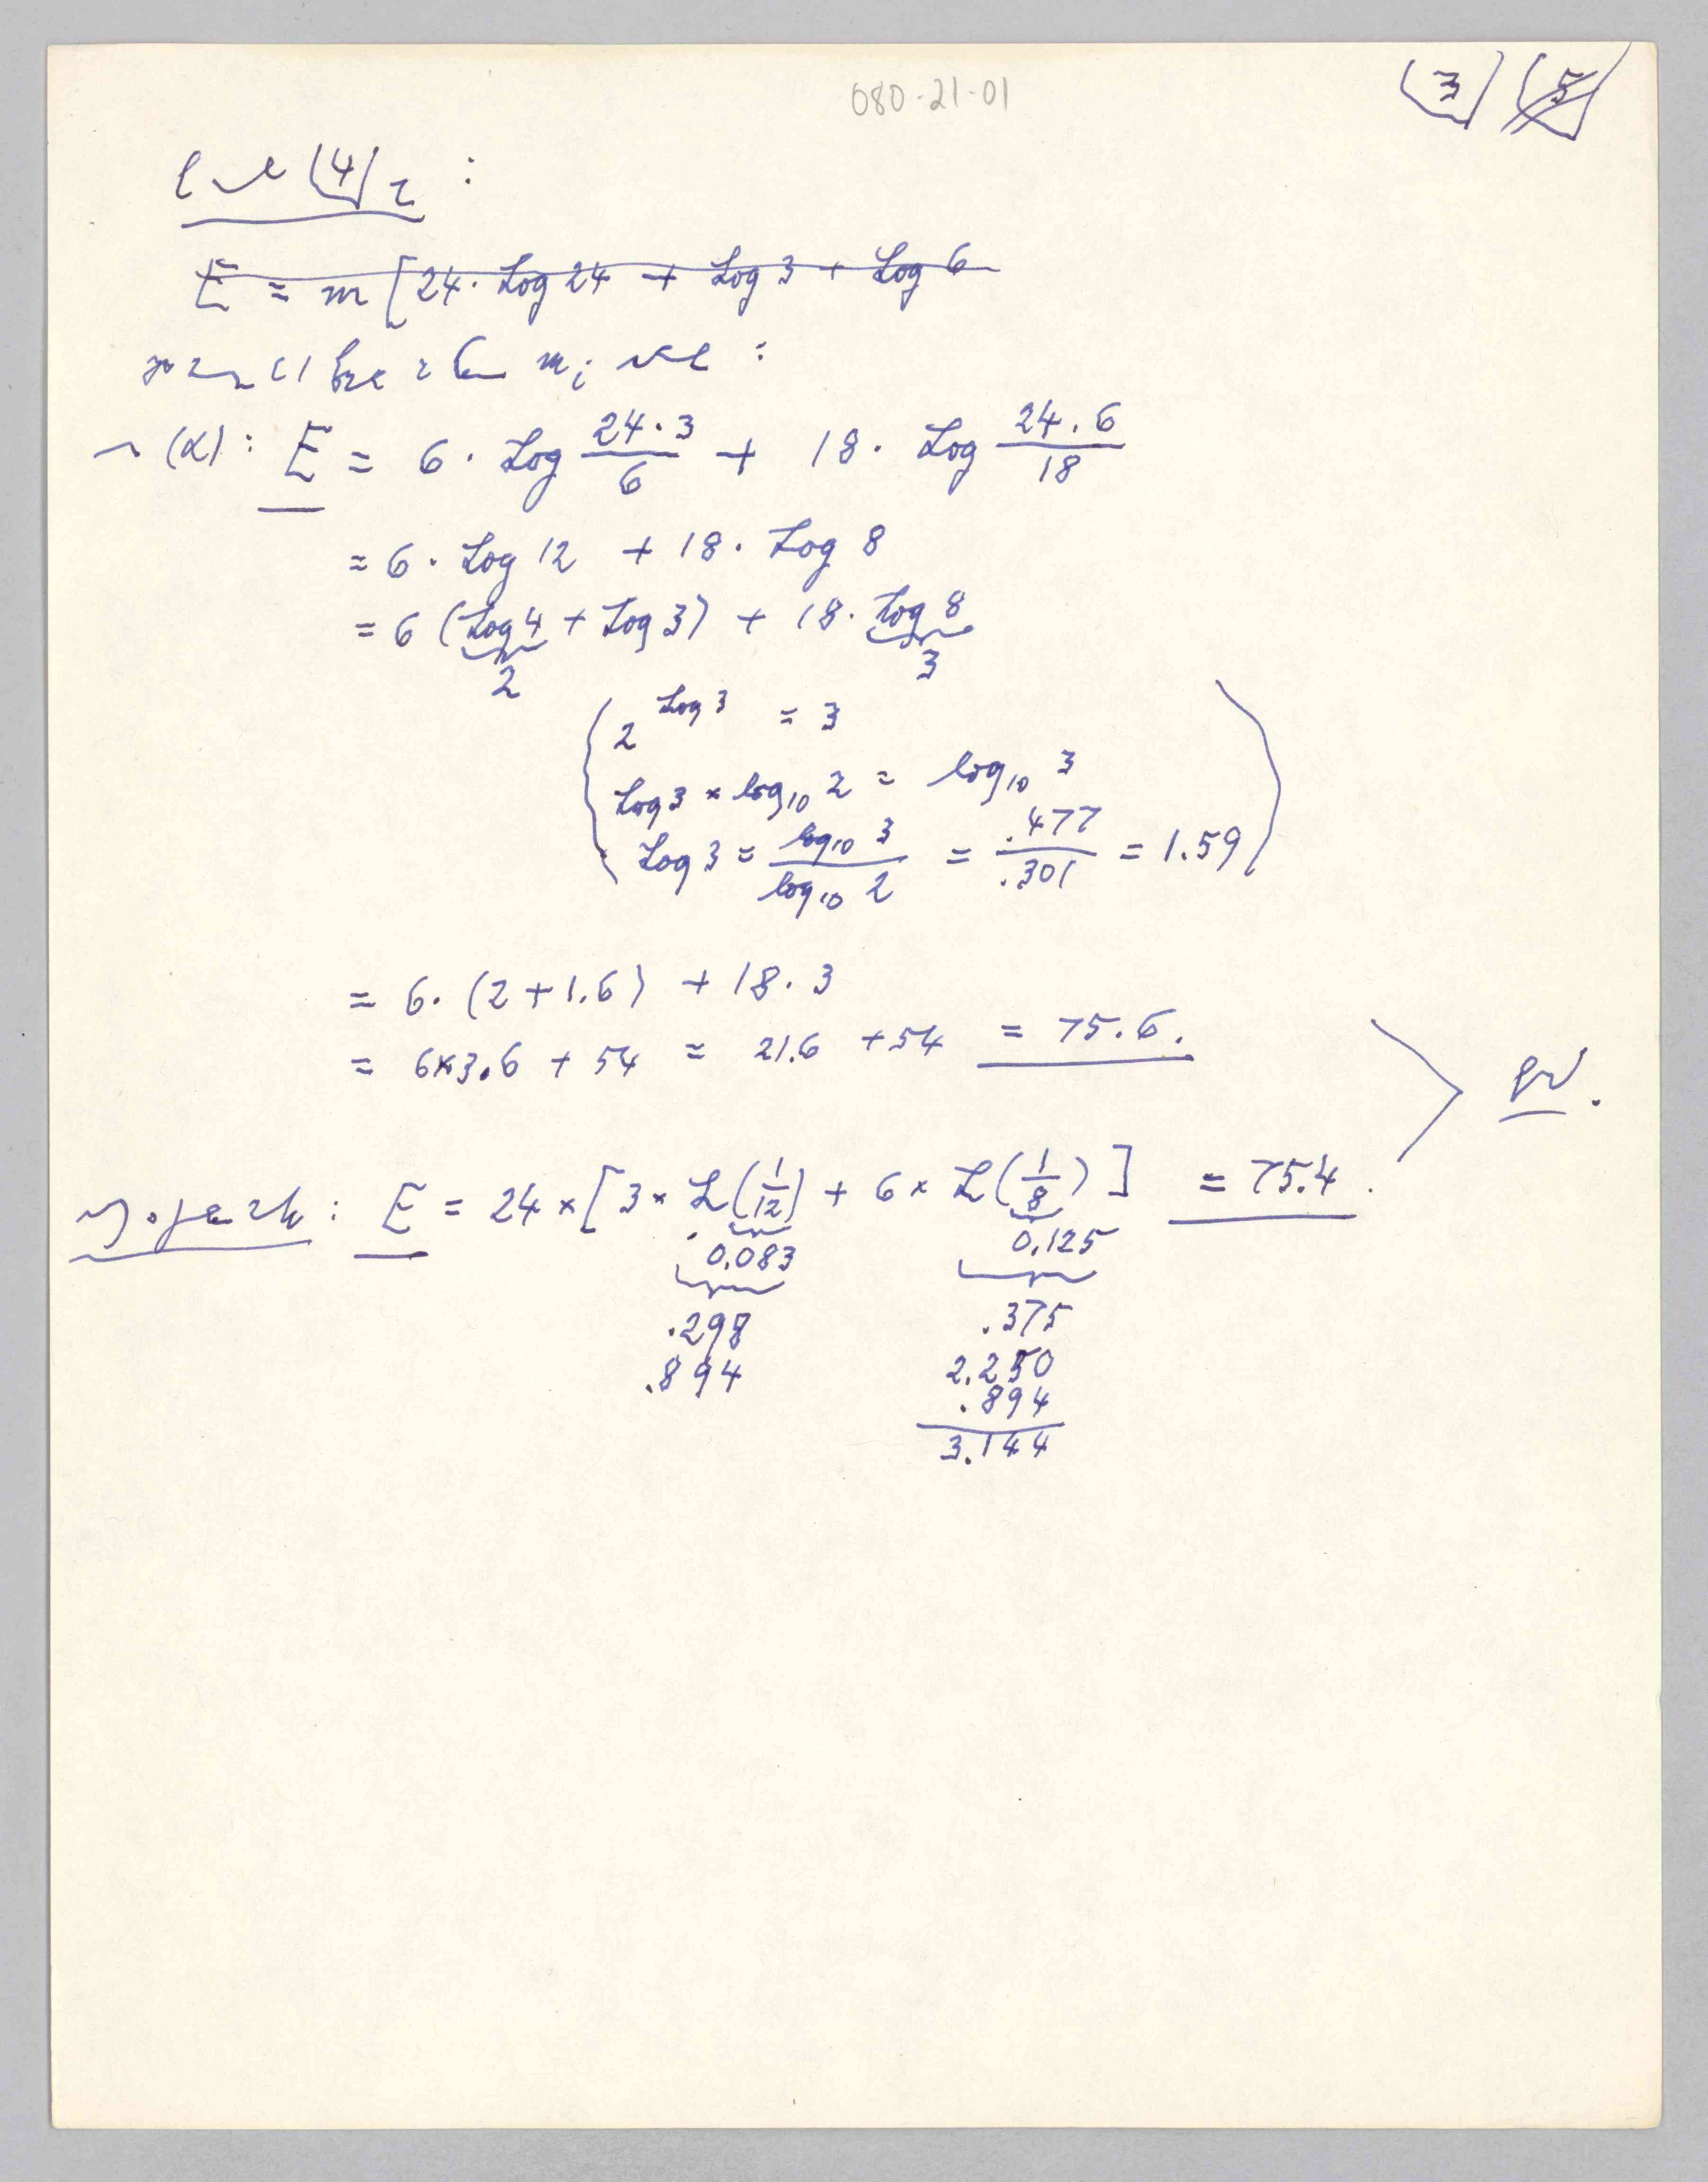 080-21-01
(3) (5)
(4) :
E = m [24 · Log 24 + Log 3 + Log 6
m; :
(α) : E = 6 · Log 24 · 3 / 6 + 18 · Log 24 . 6 / 18
= 6 · Log 12 + 18 · Log 8
= 6 (Log 4 + Log 3) + 18 · Log 8
2 3
2^Log 3 = 3
Log 3 × log₁₀ 2 = log₁₀ 3
Log 3 = log₁₀ 3 / log₁₀ 2 = .477 / .301 = 1.59
= 6 · (2 + 1.6) + 18 · 3
= 6×3.6 + 54 = 21.6 + 54 = 75.6.
: E = 24 × [3 × L(1/12) + 6 × L(1/8)] = 75.4.
0.083 0.125
.298 .375
.894 2.250
.894
3.144